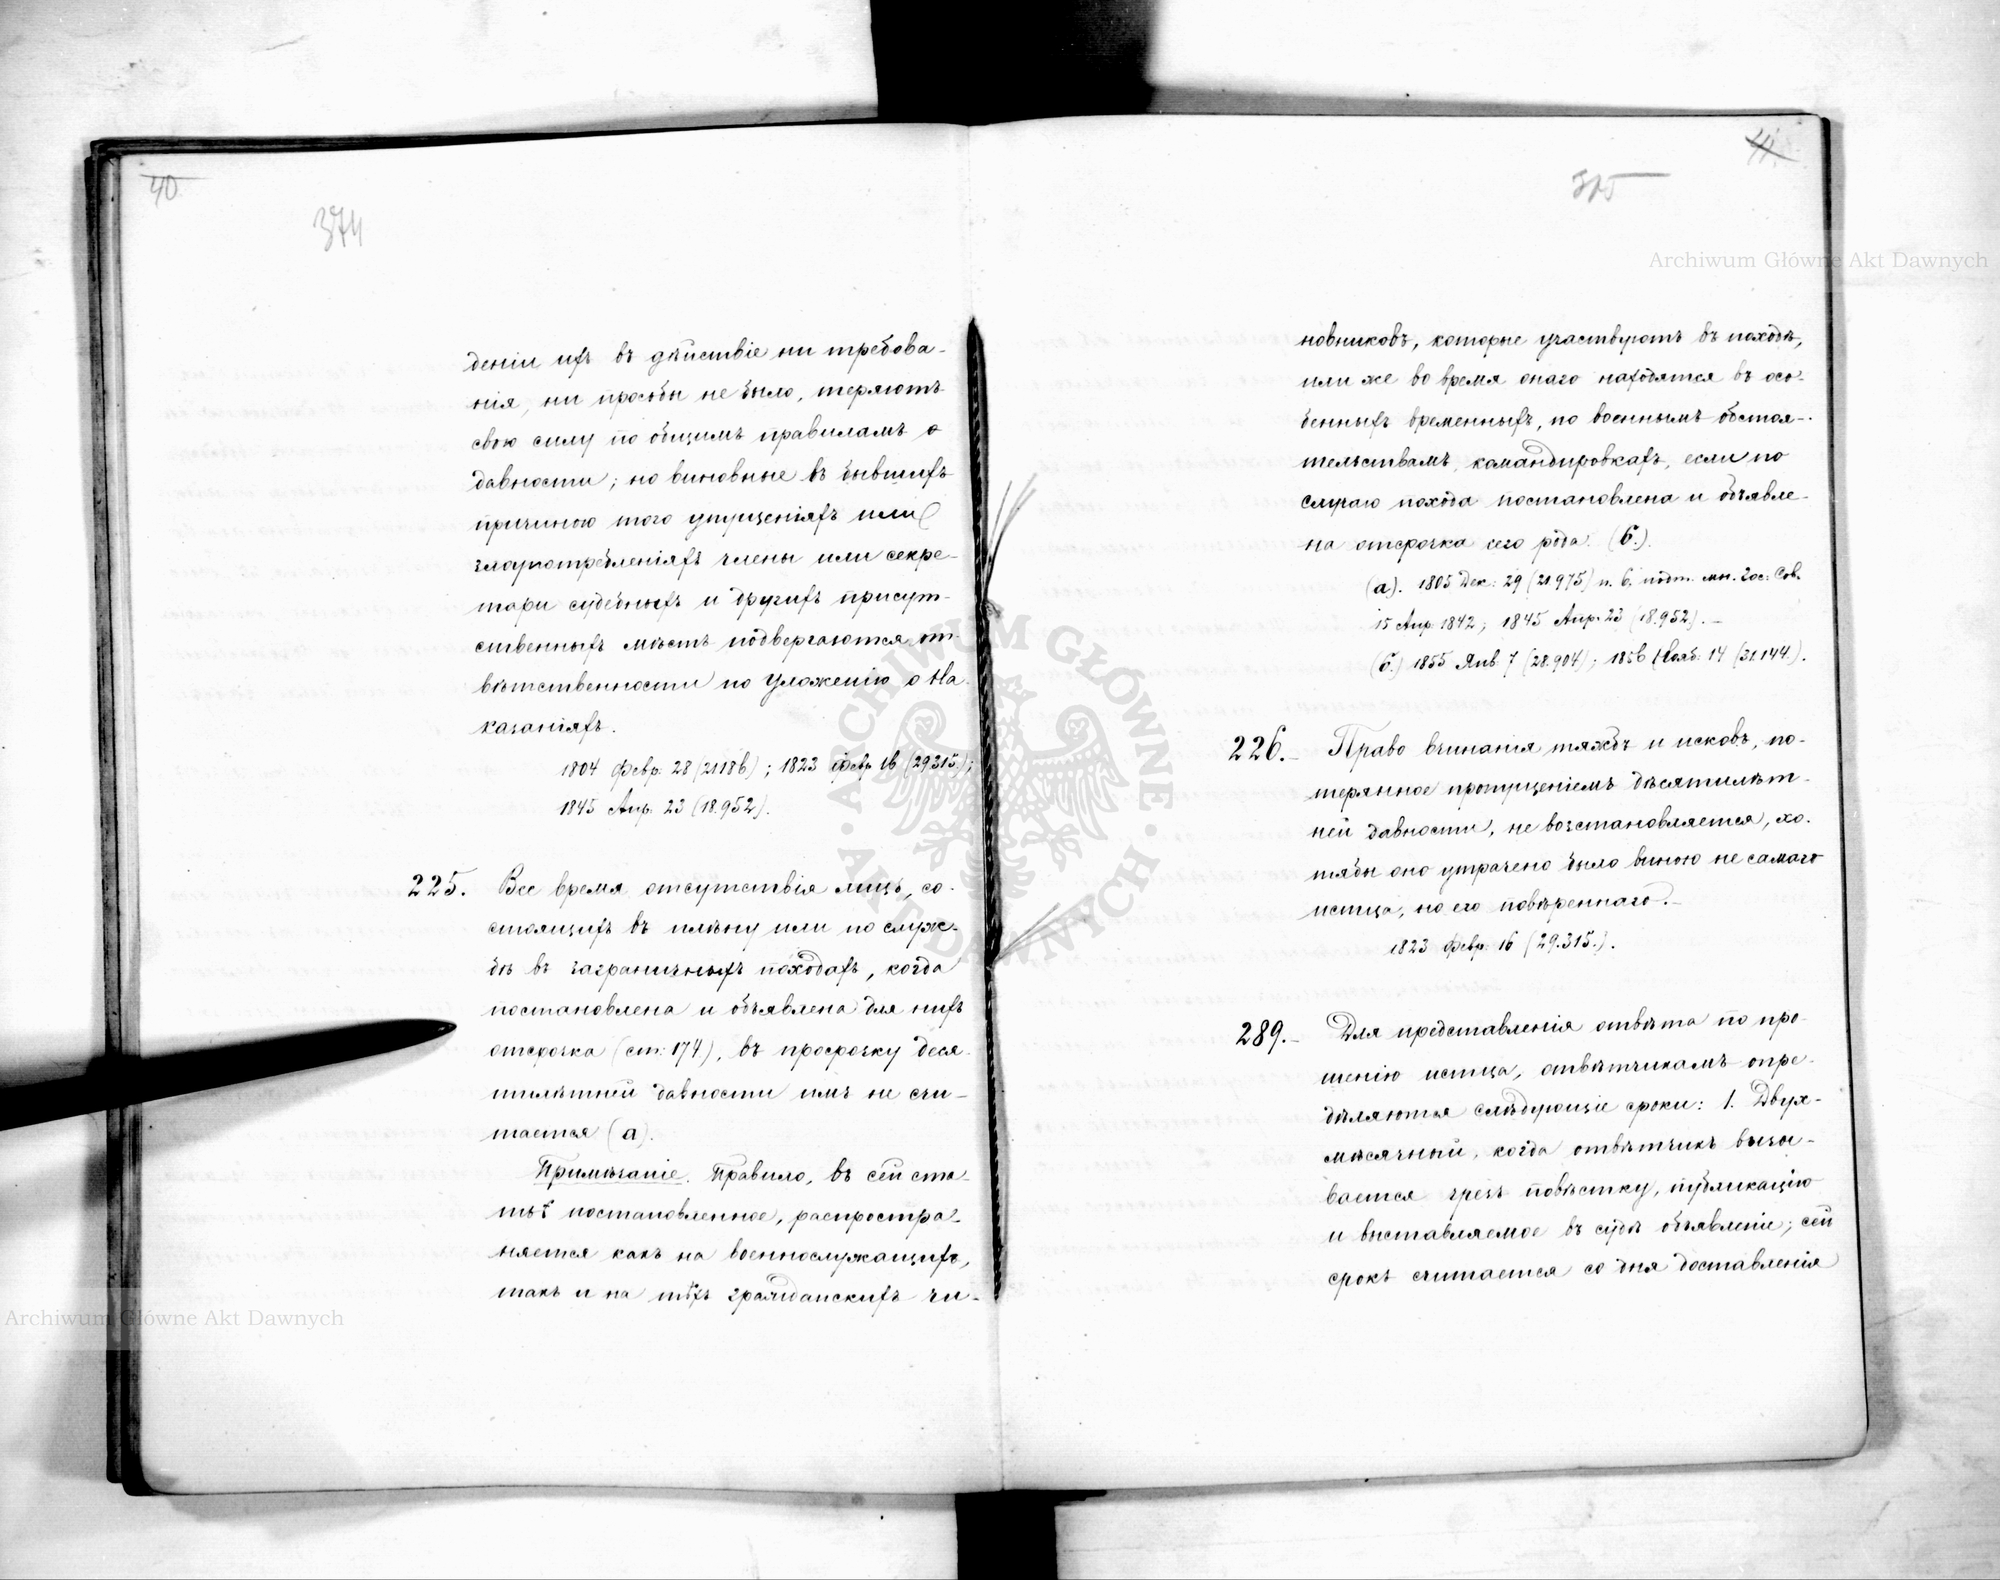 40
374
деніи ихъ въ дѣйствіе ни требова-
нія, ни просьбы не было, теряютъ
свою силу по общимъ правиламъ о
давности; но виновные въ бывшихъ
причиною того упущеніяхъ или
злоупотребленіяхъ члены или секре-
тари судебныхъ и другихъ присут-
ственныхъ мѣстъ подвергаются от-
вѣтственности по Уложенію о На-
казаніяхъ.
1804 Февр. 28 (21186); 1823 Февр. 16 (29315);
1845 Апр. 23 (18.952).
225. Все время отсутствія лицъ, со-
стоящихъ въ плѣну или по служ-
бѣ въ заграничныхъ походахъ, когда
постановлена и объявлена для нихъ
отсрочка (ст. 174), въ просрочку деся-
тилѣтней давности имъ не счи-
тается (а).
Примѣчаніе. Правило, въ сей ста-
тьѣ постановленное, распростра-
няется какъ на военнослужащихъ,
такъ и на тѣхъ гражданскихъ чи-
41.
375
Archiwum Główne Akt Dawnych
новниковъ, которые участвуютъ въ походѣ,
или же во время онаго находятся въ осо-
бенныхъ временныхъ, по военнымъ обстоя-
тельствамъ, командировкахъ, если по
случаю похода постановлена и объявле-
на отсрочка сего рода. (б.).
(а). 1805 Дек: 29 (21975) п. 6. подт. мн. Гос: Сов.
15 Апр. 1842; 1845 Апр. 23 (18.952). -
(б.) 1855 Янв. 7 (28.904); 1856 Нояб: 14 (31.144.).
226.- Право вчинанія тяжбъ и исковъ, по-
терянное пропущеніемъ десятилѣт-
ней давности, не возстановляется, хо-
тябы оно утрачено было виною не самаго
истца, но его повѣреннаго.-
1823 Февр. 16 (29.315.).
289.- Для представленія отвѣта по про-
шенію истца, отвѣтчикамъ опре-
дѣляются слѣдующіе сроки: 1. Двух-
мѣсячный, когда отвѣтчикъ вызы-
вается чрезъ повѣстку, публикацію
и выставляемое въ судѣ объявленіе; сей
срокъ считается со дня доставленія
Archiwum Główne Akt Dawnych
ARCHIWUM GŁÓWNE · AKT DAWNYCH ·